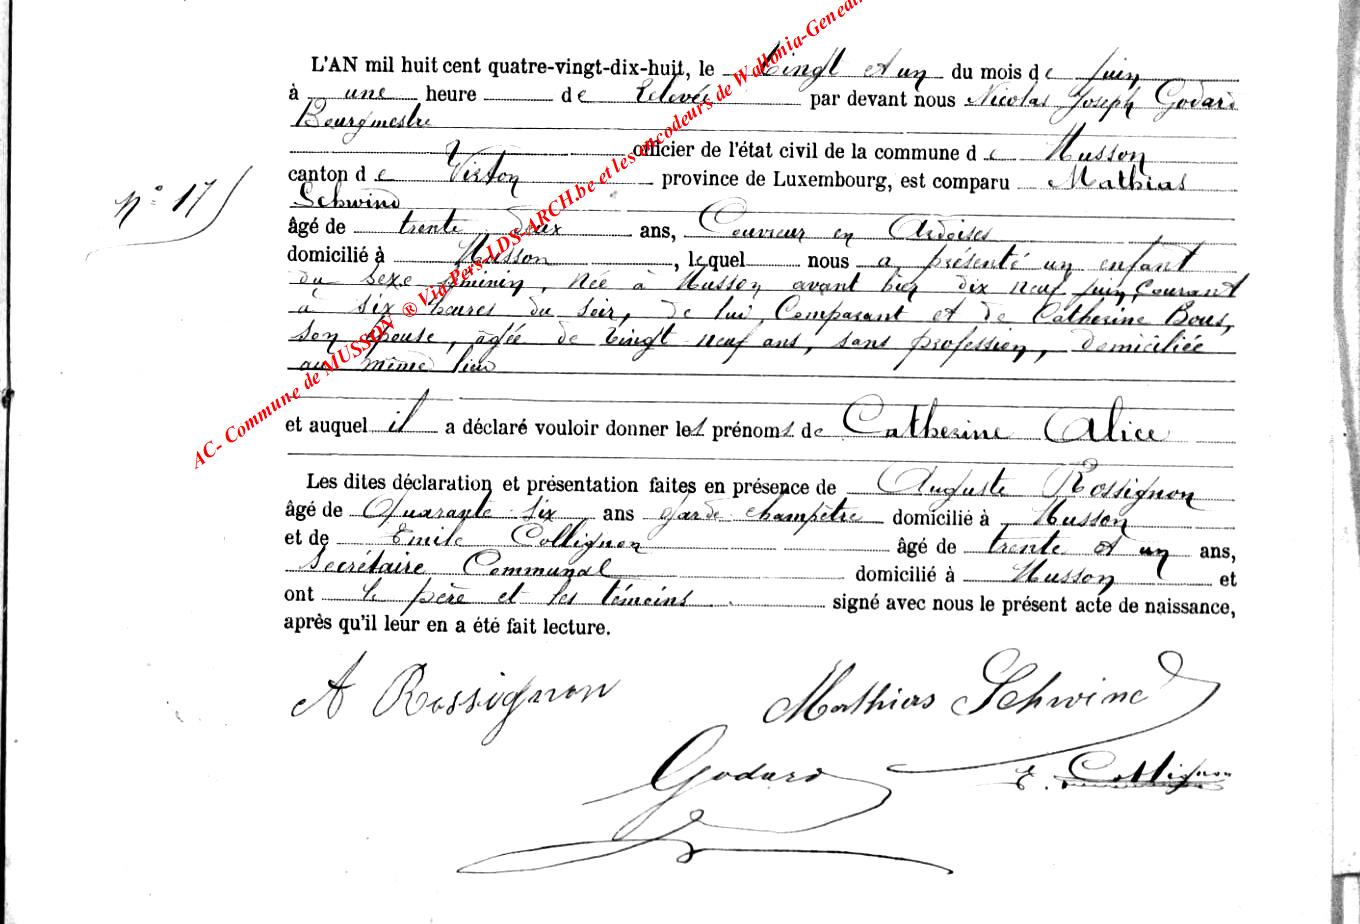 L'AN mil huit cent quatre-vingt-dix-huit, le Vingt et un du mois de juin
à une heure de Relevée par devant nous Nicolas Joseph Godard
Bourgmestre
officier de l'état civil de la commune de Musson
canton de Virton province de Luxembourg, est comparu Mathias
Schwind
âgé de trente deux ans, Couvreur en Ardoises
domicilié à Musson, lequel nous a présenté un enfant
du sexe féminin, née à Musson avant hier dix neuf juin, courant
à six heures du soir, de lui Comparant et de Catherine Bous,
son épouse, agée de vingt neuf ans, sans profession, domiciliée
au même lieu
et auquel il a déclaré vouloir donner les prénoms de Catherine Alice
Les dites déclaration et présentation faites en présence de Auguste Rossignon
âgé de Quarante six ans garde champêtre domicilié à Musson
et de Emile Collignon âgé de trente et un ans,
Secrétaire Communal domicilié à Musson et
ont le père et les témoins signé avec nous le présent acte de naissance,
après qu'il leur en a été fait lecture.
n° 17
A Rossignon
Mathias Schwind
Godard
E. Collignon
AC- Commune de MUSSON ® Via Pers-LDS-ARCH.be et les encodeurs de Wallonia-Geneal